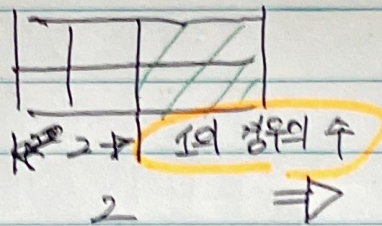 2 → 1의 경우의 수
2 ⇒